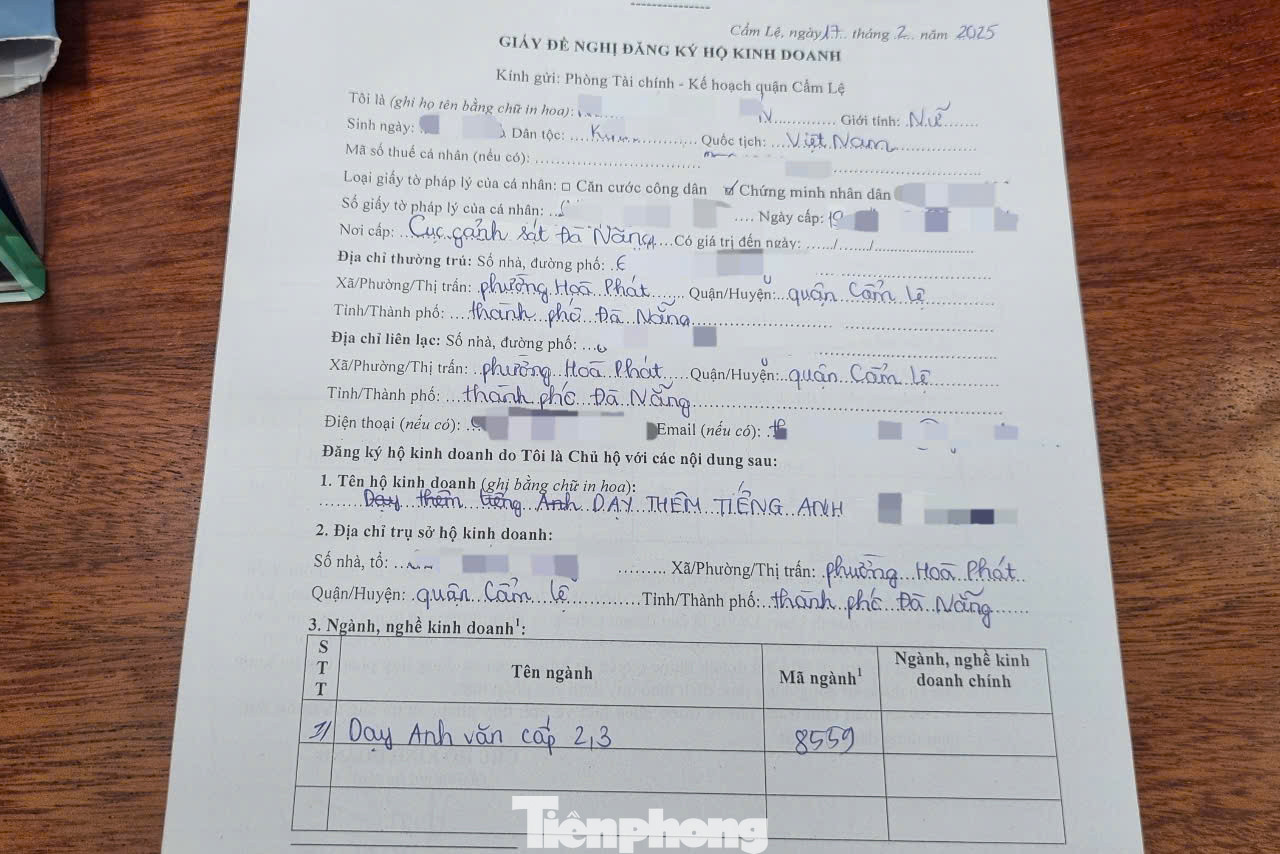 Cẩm Lệ, ngày 17.. tháng .2.. năm 2025
GIẤY ĐỀ NGHỊ ĐĂNG KÝ HỘ KINH DOANH
Kính gửi: Phòng Tài chính - Kế hoạch quận Cẩm Lệ
Tôi là (ghi họ tên bằng chữ in hoa): Giới tính: Nữ
Sinh ngày: Dân tộc: Quốc tịch: Việt Nam
Mã số thuế cá nhân (nếu có):
Loại giấy tờ pháp lý của cá nhân: □ Căn cước công dân ☑ Chứng minh nhân dân
Số giấy tờ pháp lý của cá nhân: Ngày cấp: 19
Nơi cấp: Cục cảnh sát Đà Nẵng Có giá trị đến ngày: ....../......./
Địa chỉ thường trú: Số nhà, đường phố:
Xã/Phường/Thị trấn: phường Hoà Phát Quận/Huyện: quận Cẩm Lệ
Tỉnh/Thành phố: thành phố Đà Nẵng
Địa chỉ liên lạc: Số nhà, đường phố:
Xã/Phường/Thị trấn: phường Hoà Phát Quận/Huyện: quận Cẩm Lệ
Tỉnh/Thành phố: thành phố Đà Nẵng
Điện thoại (nếu có): Email (nếu có):
Đăng ký hộ kinh doanh do Tôi là Chủ hộ với các nội dung sau:
1. Tên hộ kinh doanh (ghi bằng chữ in hoa):
Dạy thêm tiếng Anh DẠY THÊM TIẾNG ANH
2. Địa chỉ trụ sở hộ kinh doanh:
Số nhà, tổ: Xã/Phường/Thị trấn: phường Hoà Phát
Quận/Huyện: quận Cẩm Lệ Tỉnh/Thành phố: thành phố Đà Nẵng
3. Ngành, nghề kinh doanh¹:
STT Tên ngành Mã ngành¹ Ngành, nghề kinh doanh chính
1/ Dạy Anh văn cấp 2,3 8559
Tiênphong